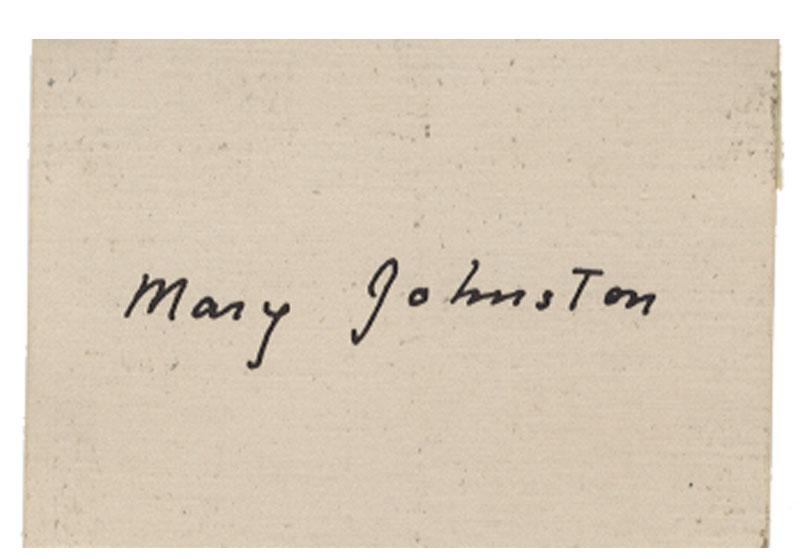 Mary Johnston